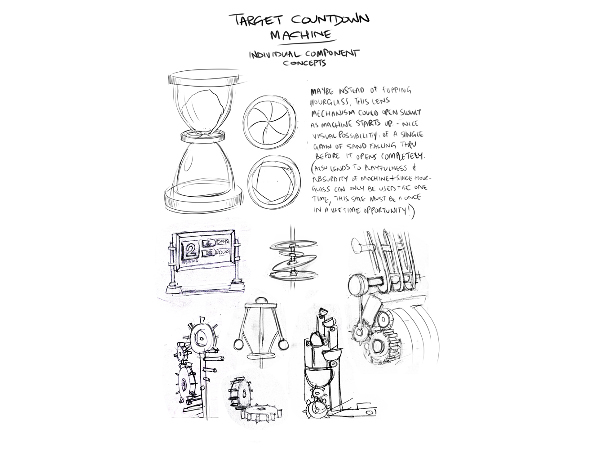 TARGET COUNTDOWN
MACHINE
INDIVIDUAL COMPONENT
CONCEPTS
MAYBE INSTEAD OF TOPPING
HOURGLASS, THIS LENS
MECHANISM COULD OPEN
AS MACHINE STARTS UP - NICE
VISUAL POSSIBILITY OF A SINGLE
GRAIN OF SAND FALLING THRU
BEFORE IT OPENS COMPLETELY.
(ALSO LENDS TO PLAYFULNESS &
ABSURDITY OF MACHINE + SINCE HOUR-
GLASS CAN ONLY BE USED THE ONE
TIME, THIS SALE MUST BE A ONCE
IN A LIFETIME OPPORTUNITY!)
2